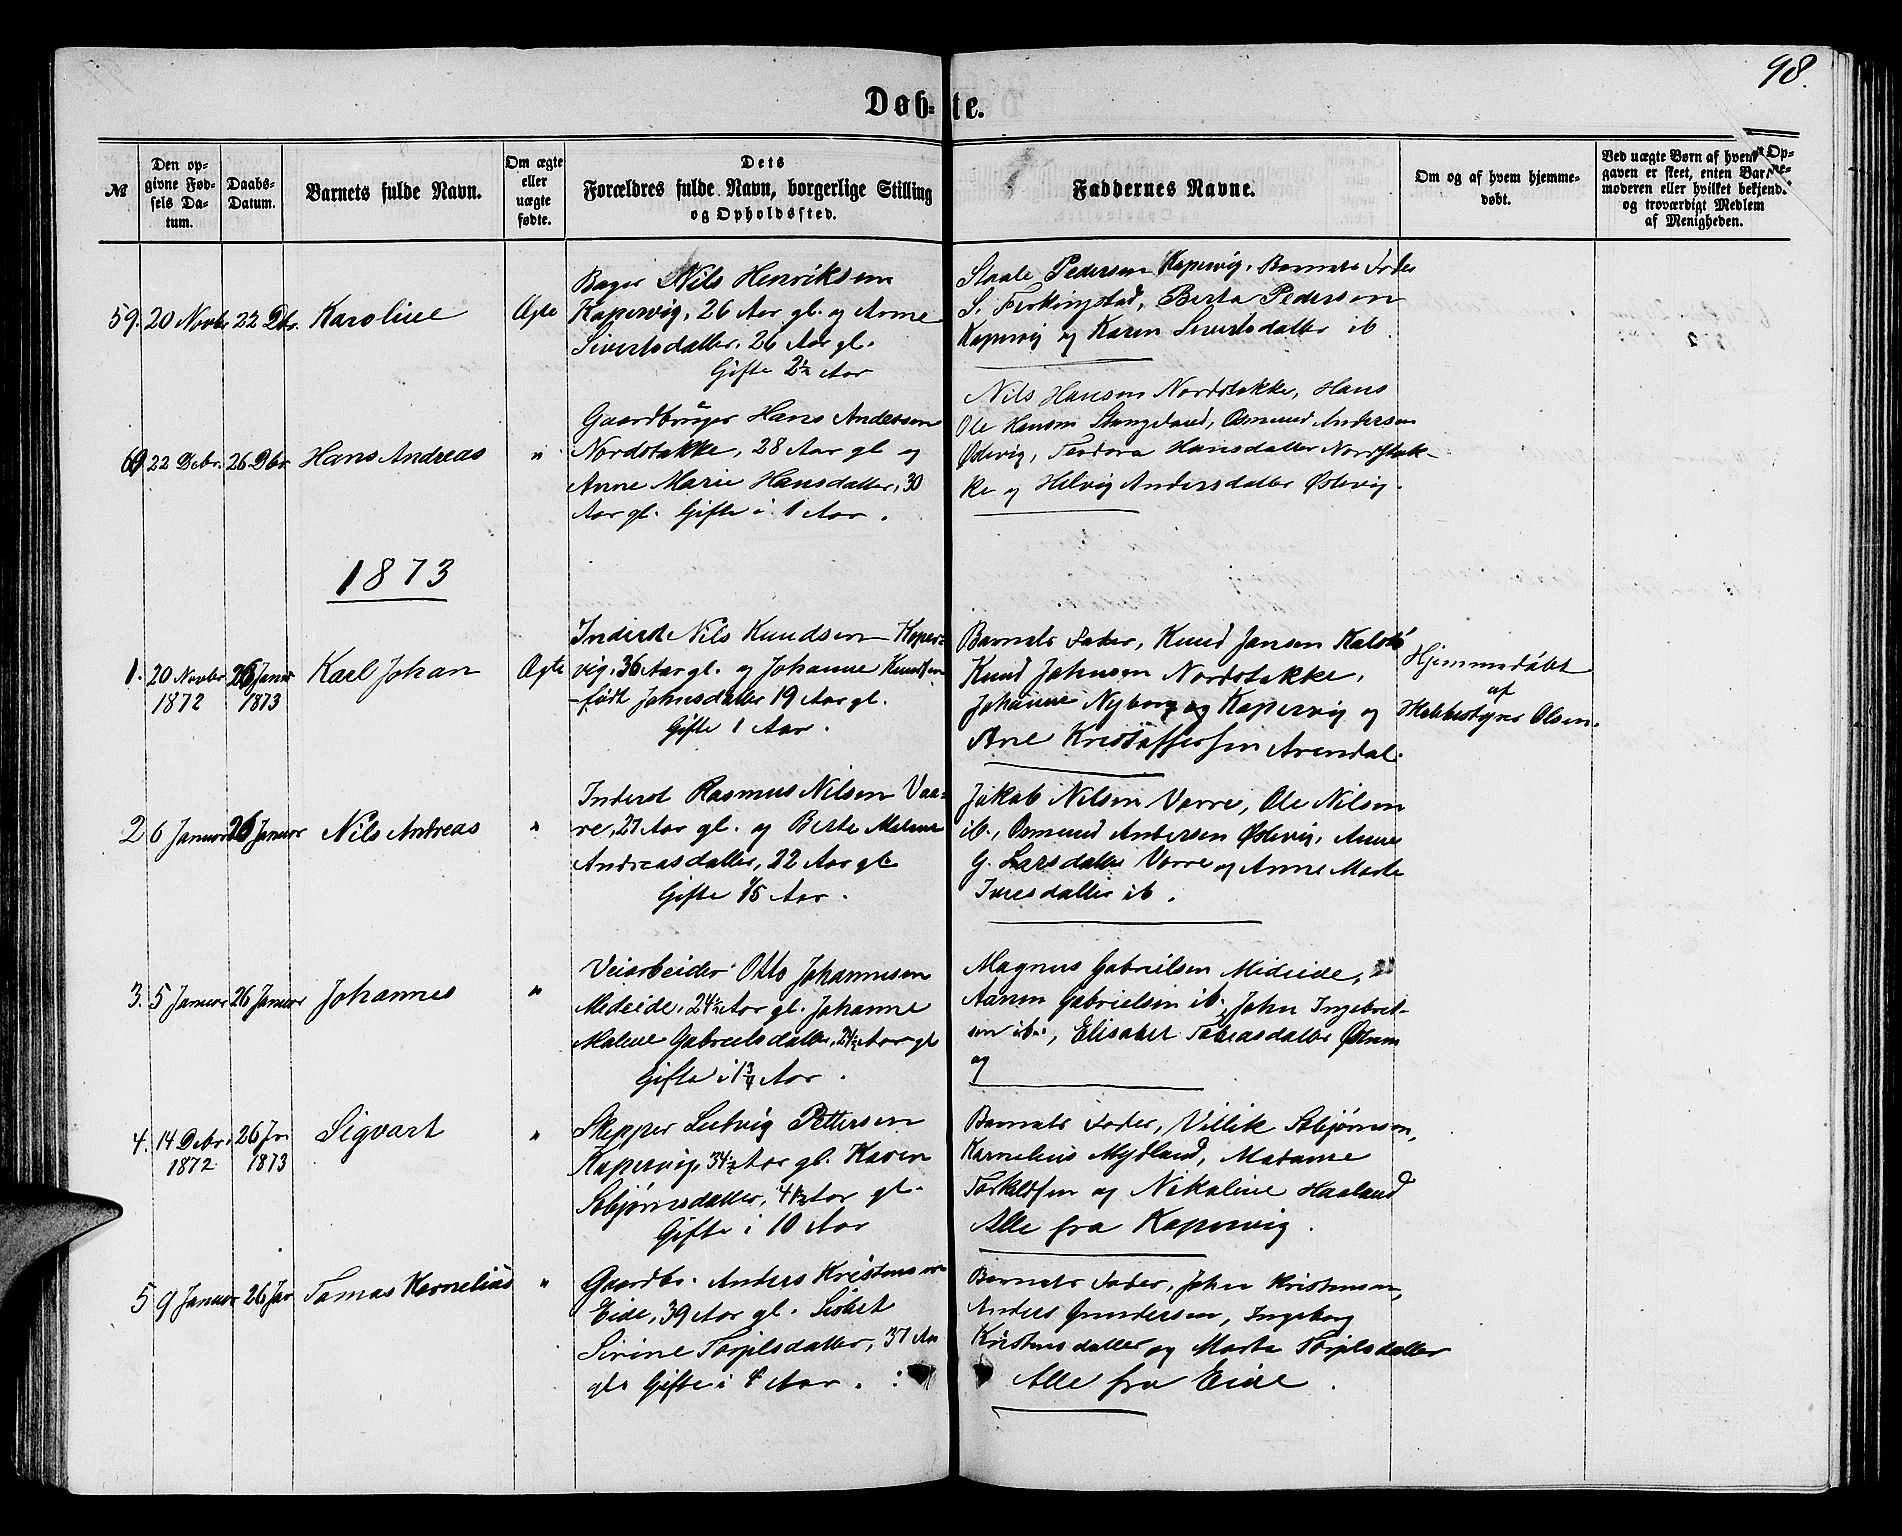 98.
Døb= te.
№
Den op-
givne Fød-
sels Da-
tum.
Daabs-
Datum.
Barnets fulde Navn.
Om ægte
eller
uægte
fødte.
Dets
Forældres fulde Navn, borgerlige Stilling
og Opholdssted.
Faddernes Navne.
Om og af hvem hjemme-
døbt.
Ved uægte Børn af hvem Op-
gaven er skeet, enten Barne-
moderen eller hvilket bekjend-
og troværdigt Medlem
af Menigheden.
59. 20 Novbr 22 Dbr. Karoline Ægte
Nils Henriksen
Kopervig, 26 Aar gl. og Anne
Sivertsdatter, 26 Aar gl.
Gifte 2½ Aar
Staale Pedersen Kopervig, Barnets Fader
S. Ferkingstad, Berta Pedersen
Kopervig og Karen Sivertsdatter ib.
60 22 Debr. 26 Dbr. Hans Andreas "
Gaardbruger Hans Andersen
Nordstokke, 28 Aar gl og
Anne Marie Hansdatter, 30
Aar gl. Gifte i 1 Aar.
Nils Hansen Nordstokke, Hans
Ole Hansen Stangeland, Osmund Andersen
Østevig, Teodora Hansdatter Nordstok-
ke og Helvig Andersdatter Østevig.
1873
1. 20 Novbr 1872 26 Januar 1873 Karl Johan Ægte
Inderst Nils Knudsen Koper-
vig, 36 Aar gl. og Johanne Knudsen
-født Johnsdatter 19 Aar gl.
Gifte 1 Aar.
Barnets Fader, Knud Jansen Kalstø
Knud Johnsen Nordstokke,
Johanne Nyborg og Kopervig og
Ane Kristoffersen Arendal.
Hjemmedøbt
af
Olsen.
2 6 Januar 26 Januar Nils Andreas "
Inderst Rasmus Nilsen Vaa-
re, 27 Aar gl. og Berte Malene
Andreasdatter, 22 Aar gl.
Gifte Aar.
Jakob Nilsen Vorre, Ole Nilsen
ib., Osmund Andersen Østevig, Anne
G. Larsdatter Vorre og Anne Marte
Iversdatter ib.
3. 5 Januar 26 Januar Johannes "
Veiarbeider Otto Johannesen
Medeide, 24½ Aar gl. Johanne
Malene Gabrielsdatter, 24½ Aar gl
Gifte i 1¾ Aar.
Magnus Gabrielsen Mideide,
Aanen Gabrielsen ib. John Ingebret-
sen ib., Elisabet Tobiasdatter
og
4. 14 Debr. 1872 26 Jn 1873 Sigvart "
Skipper Ludvig Pettersen
Kopervig, 34½ Aar gl. Karen
Sebjørnsdatter, 41½ Aar gl.
Gifte i 10 Aar
Barnets Fader, Villik Sebjørnsen,
Kornelius Mydland, Madame
Torkildsen og Nikoline Haaland
Alle fra Kopervig.
5 9 Januar 26 Jar Tomas Kornelius "
Gaardbr. Anders Kristensen
Eide, 39 Aar gl. Sisbet
Sirine Torjilsdatter, 37 Aar
gl. Gifte i 8 Aar.
Barnets Fader, John Kristensen,
Anders Gundersen, Ingeborg
Kristensdatter og Marta Torjilsdatter
Alle fra Eide.